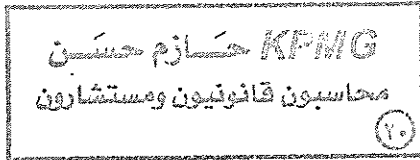 KPMG حازم حسن
محاسبون قانونيون ومستشارون
(٢٠)